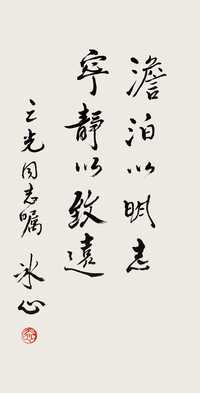 澹泊以明志
寧静以致遠
三光同志嘱
冰心